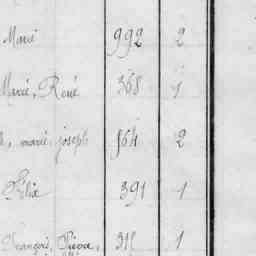 Marie 992 2
Marie, René 368 1
marie joseph 564 2
Félix 391 1
François, Pierre, 315 1